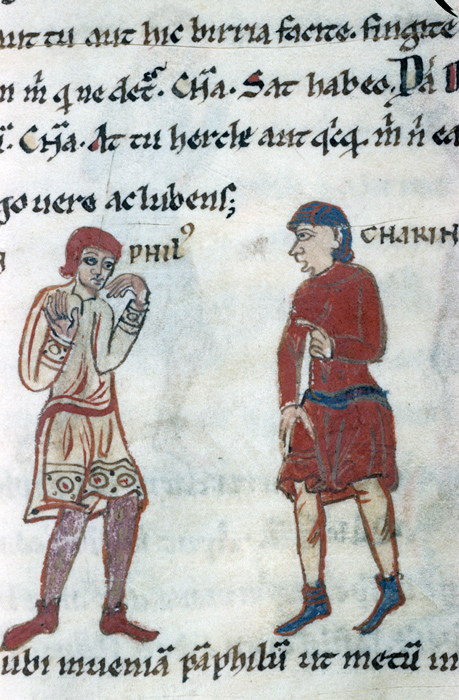 aut tu aut hic birria facite. fingite
n m̄ q ne det᷑. Cha̅. Sat habeo. Pa̅
. Cha̅. At tu hercle aut qͥcq̣ m̄ n̄ ea
go uere ac lubens;
PHIL᾿ CHARIN
ubi inuenia̅ pa̅philu̅ ut metu̅ in